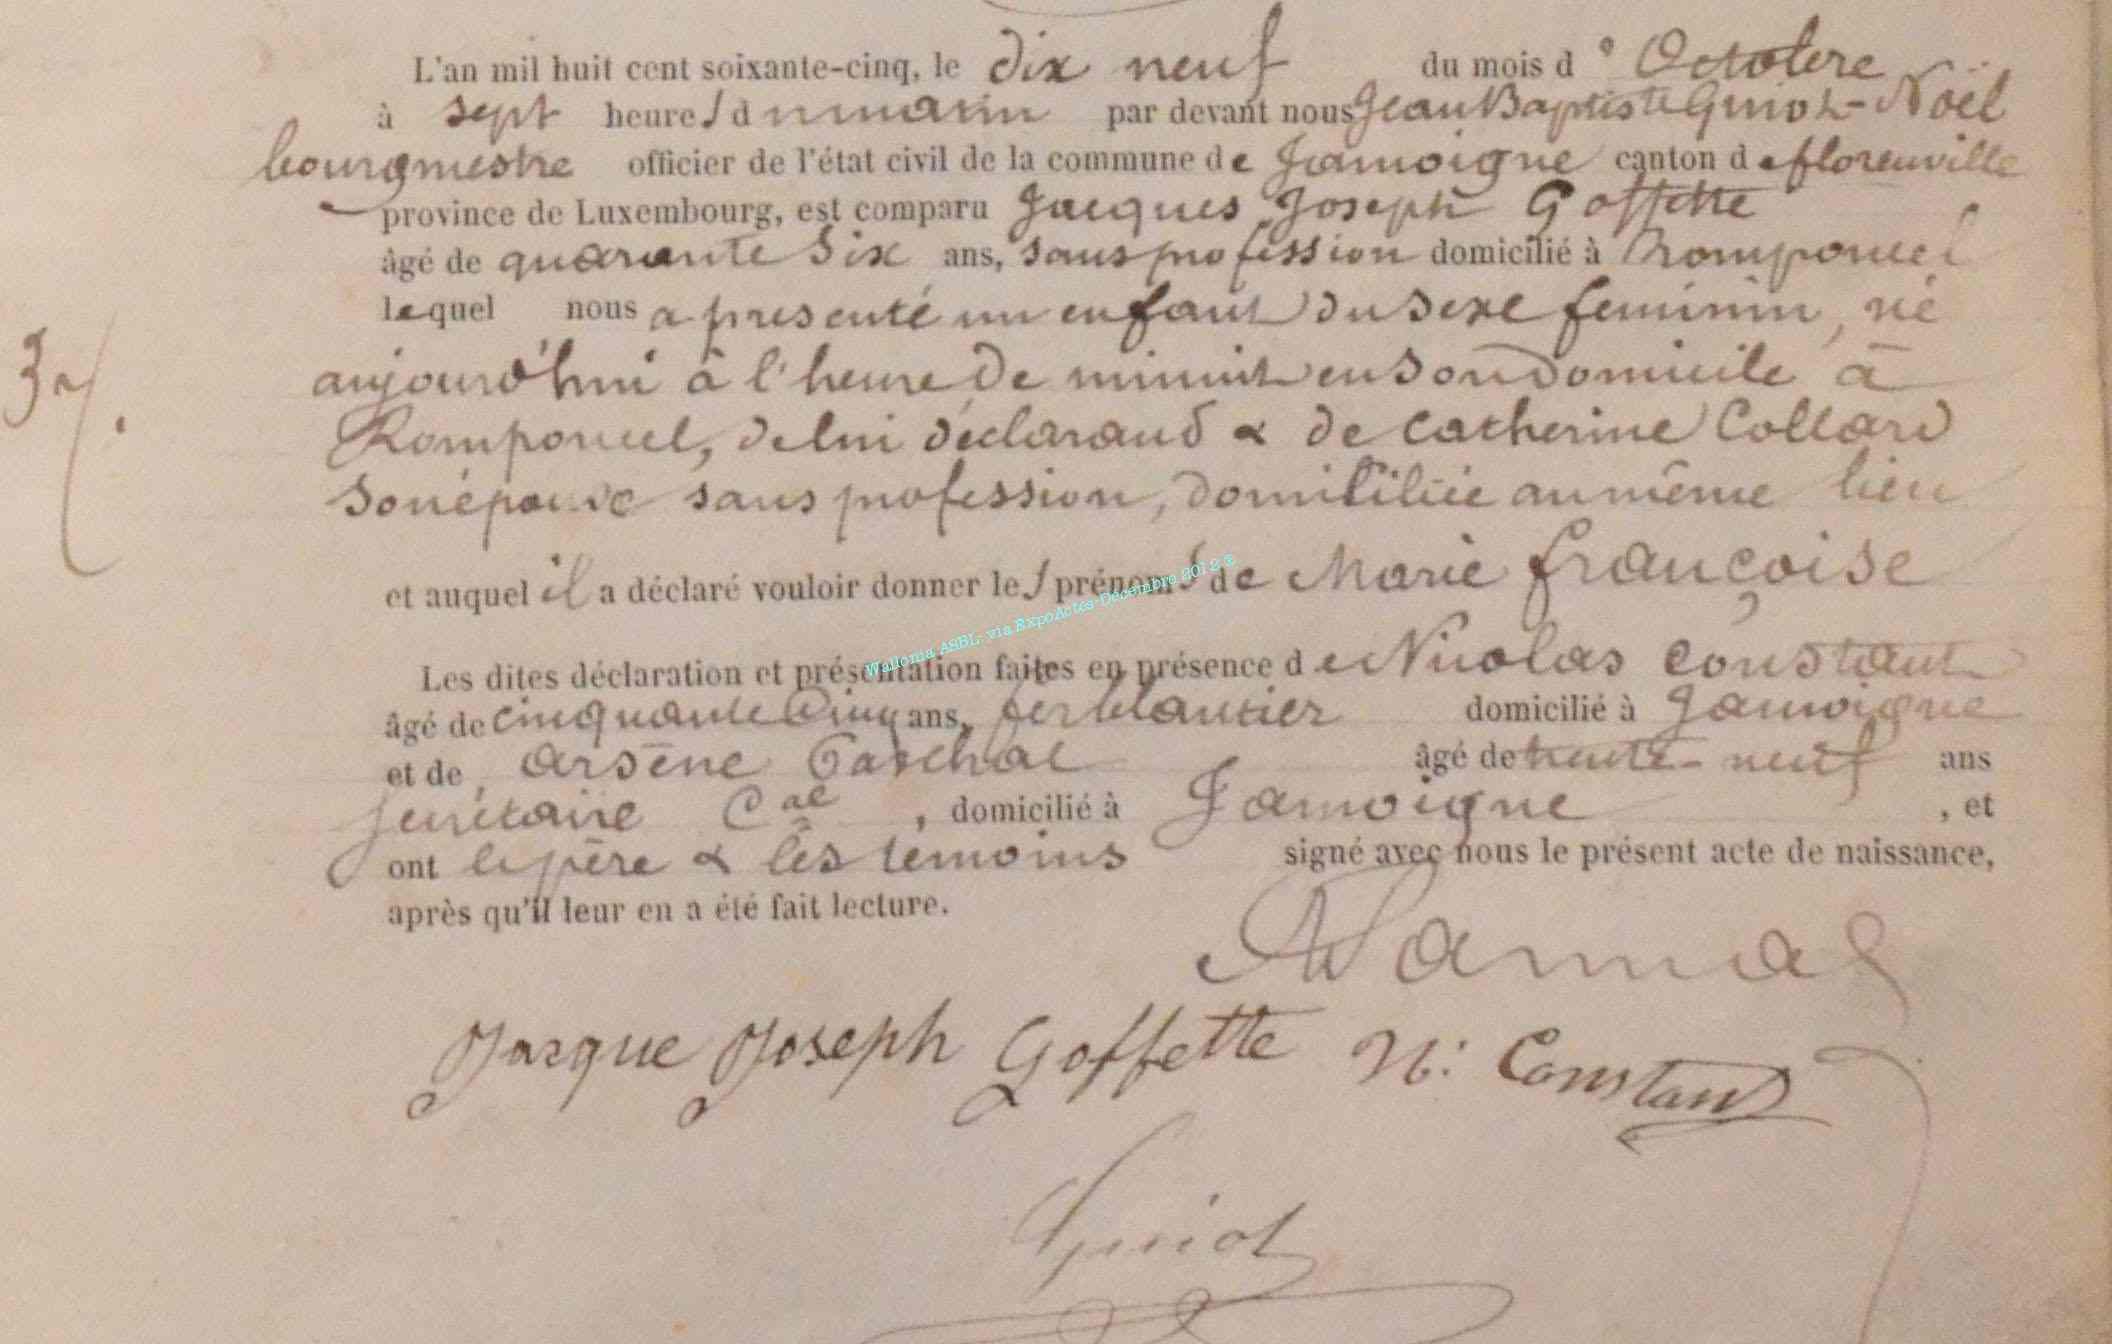 L'an mil huit cent soixante-cinq, le dix neuf du mois d'Octobre
à sept heures du matin par devant nous Jean Baptiste Guiot-Noël
bourgmestre officier de l'état civil de la commune de Jamoigne canton de florenville
province de Luxembourg, est comparu Jacques Joseph Goffette
âgé de quarante six ans, sans profession domicilié à Romponcel
lequel nous a presenté un enfant du sexe feminin, né
aujourd'hui à l'heure de minuit en son domicile à
Romponcel, de lui déclarand & de Catherine Collard
son épouse sans profession, domiciliée au même lieu
et auquel il a déclaré vouloir donner les prénoms de Marie françoise
Wallonia ASBL- via ExpoActes-Décembre 2012
Les dites déclaration et présentation faites en présence de Nicolas Constant
âgé de cinquante cinq ans, ferblantier domicilié à Jamoigne
et de Arsène Paschal âgé de trente-neuf ans
secrétaire Cal, domicilié à Jamoigne, et
ont le père & les témoins signé avec nous le présent acte de naissance,
après qu'il leur en a été fait lecture.
Jacque Joseph Goffette N: Constant
Guiot